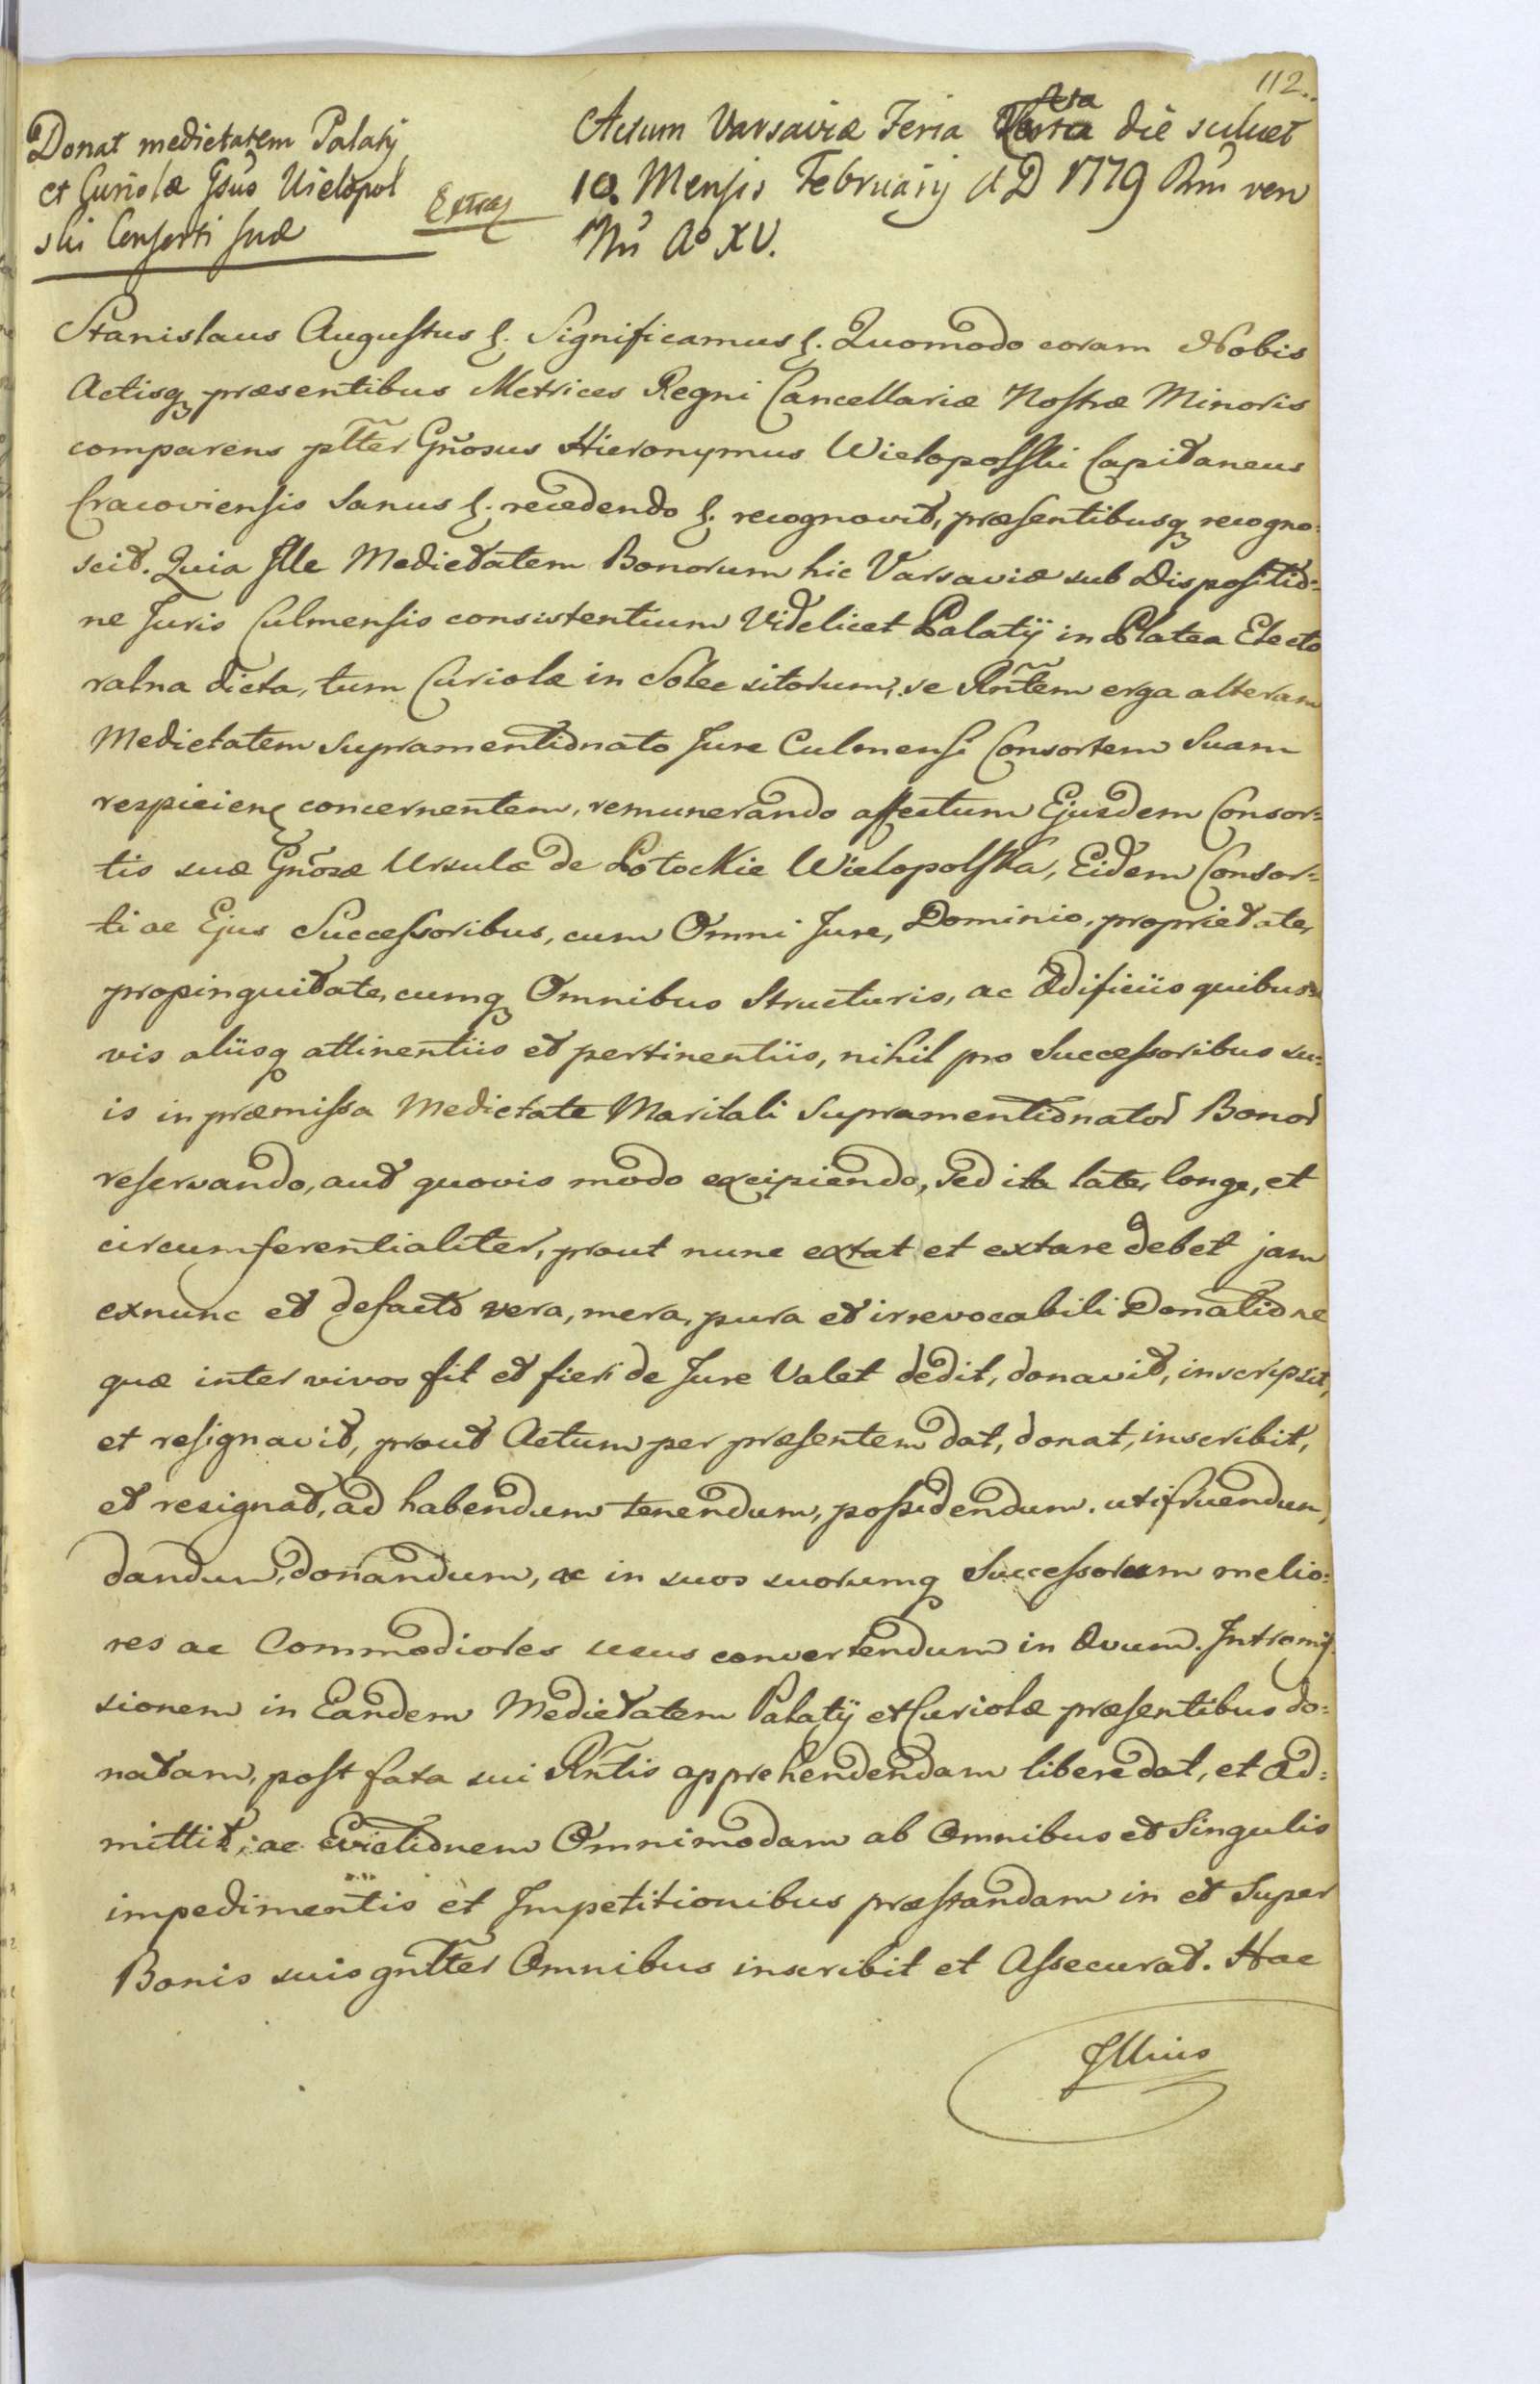 112.
Donat medietatem Palatij
et Curiolæ Gsus Wielopol
ski Consorti suæ
Extrad
Actum Varsaviæ Feria die scilicet
10. Mensis Februarij A D 1779 Rni vero
Nri Ao XV.
Stanislaus Augustus &. Significamus &. Quomodo coram Nobis
Actisq præsentibus Metrices Regni Cancellariæ Nostræ Minoris
comparens pltter Gnosus Hieronymus Wielopolski Capitaneus
Cracoviensis Sanus &. recedendo &. recognovit, præsentibusq recogno:
scit. Quia Ille Medietatem Bonorum hic Varsaviæ sub Dispositio:
ne Juris Culmensis consistentium Videlicet Palatij in Platea Electo
ralna dicta, tum Curiolæ in Solec sitorum, se Rntem erga alteram
Medietatem Supramentionato Jure Culmensi Consortem Suam
respicien concernentem, remunerando affectum Ejusdem Consor=
tis suæ Gnosæ Ursulæ de Potockie Wielopolska, Eidem Consor=
ti ac Ejus Successoribus, cum Omni Jure, Dominio, proprietate,
propinguitate, cumq Omnibus Structuris, ac Ædificiis quibus=
vis aliisq attinentiis et pertinentiis, nihil pro Successoribus su=
is in præmissa Medietate Maritali Supramentionator Bonor
reservando, aut quovis modo excipiendo, sed ita late, longe, et
circumferentialiter, prout nunc extat et extare debet jam
exnunc et defacto vera, mera, pura et irrevocabili Donatione
quæ inter vivos fit et fieri de Jure Valet dedit, donavit, inscripsit,
et resignavit, prout Actum per præsentem dat, donat, inscribit,
et resignat, ad habendum tenendum, possidendum. utifruendum,
dandum, donandum, ac in suos suorumq Successorum melio=
res ac Commodiores usus convertendum in Ævum. Intromis=
sionem in Eandem Medietatem Palatij et Curiolæ præsentibus do=
natam, post fata sui Rntis apprehendendam libere dat, et Ad=
mittit, ac Evictionem Omnimodam ab Omnibus et Singulis
impedimentis et Impetitionibus præstandam in et Super
Bonis suis gnltter Omnibus inscribit et Assecurat. Hac
Illius